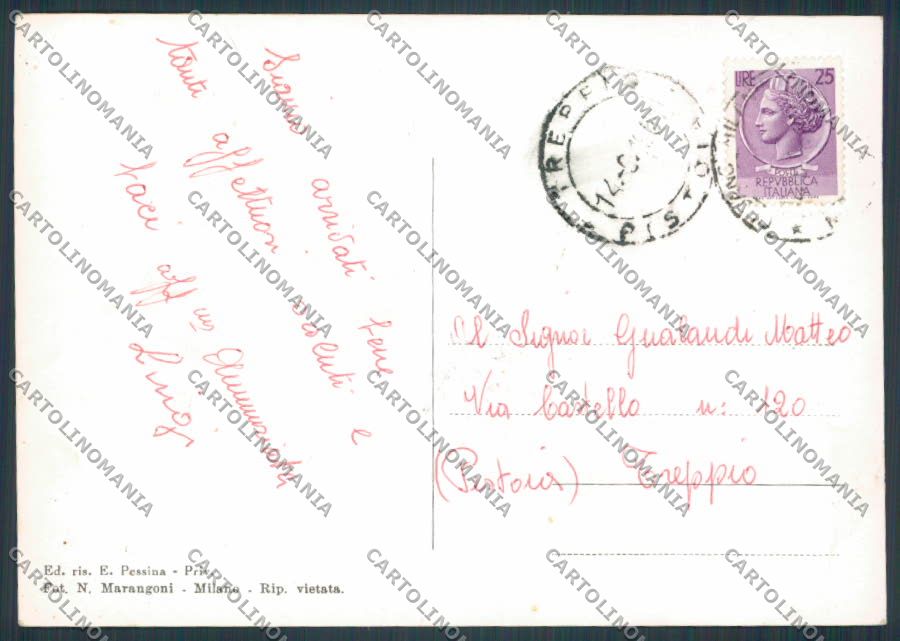 Siamo arrivati bene e
tanti affettuosi saluti e
baci aff mi Annunziata
Lino
LIRE 25
POSTE
REPVBBLICA
ITALIANA
TREPPIO
PISTOIA
14-8
Al Signor Gualandi Matteo
Via Castello n: 120
(Pistoia) Treppio
Ed. ris. E. Pessina -
Fot. N. Marangoni - Milano - Rip. vietata.
CARTOLINOMANIA